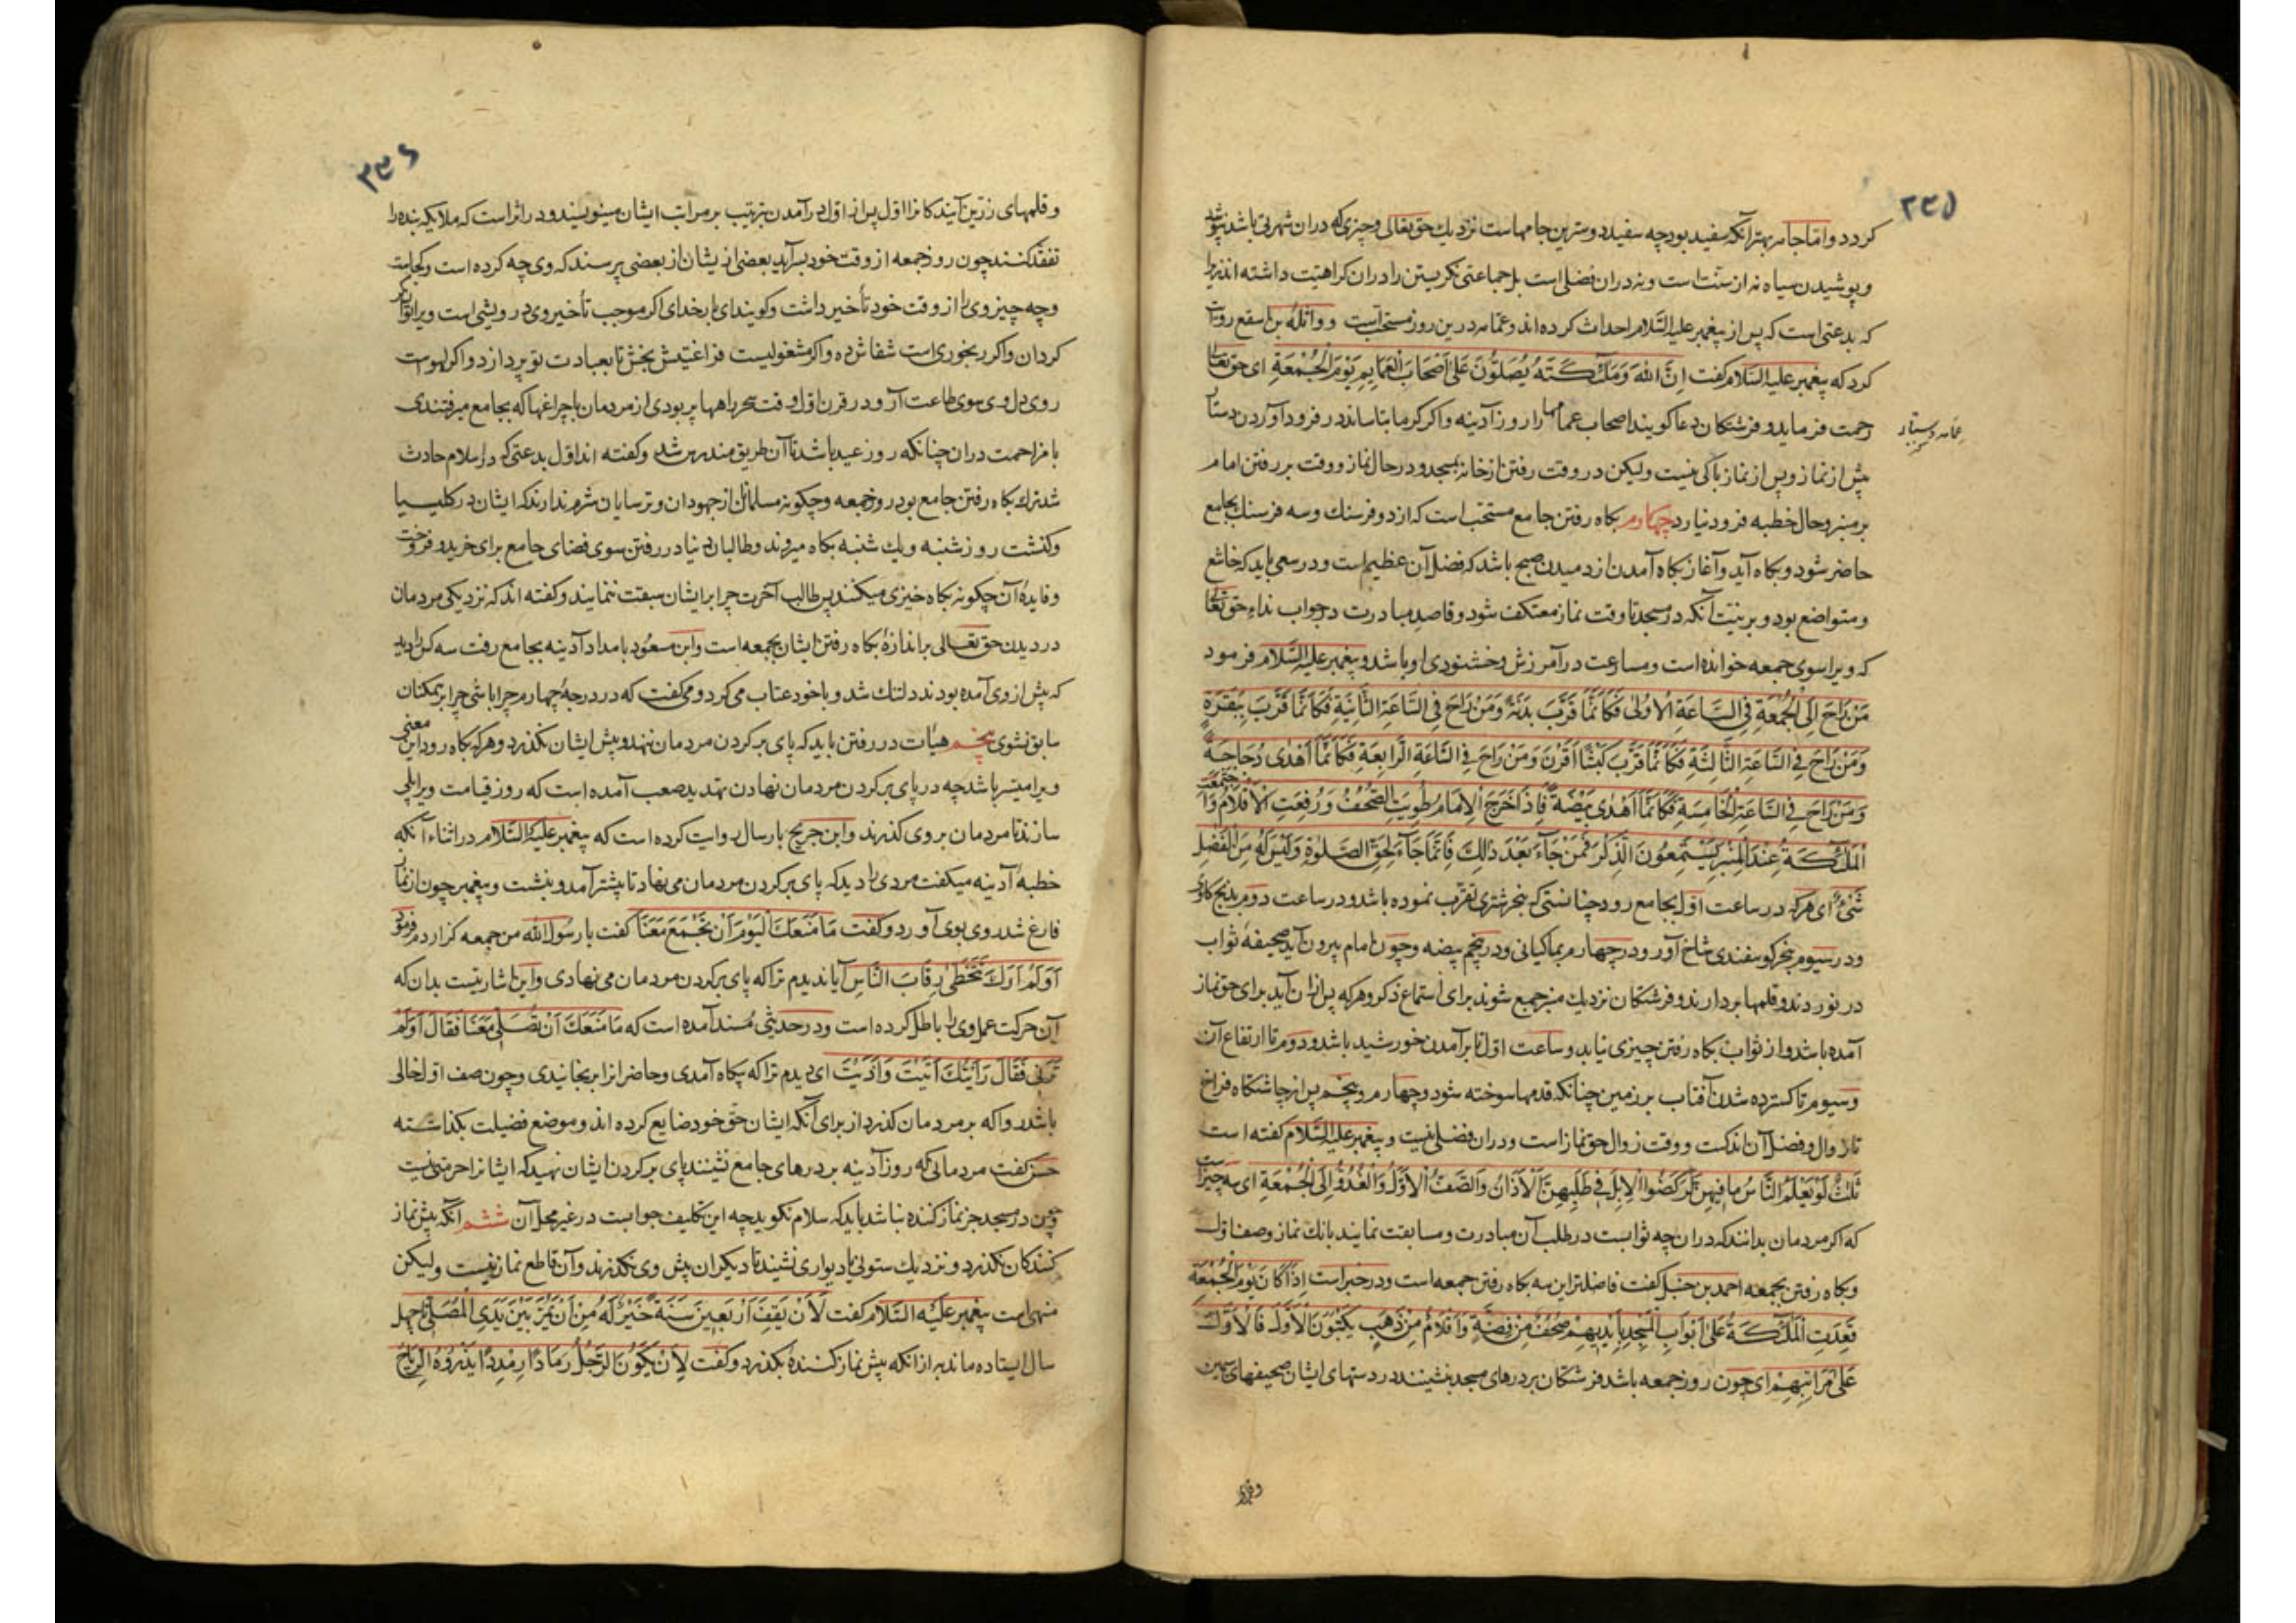 ۲۳۵
كردد و اما جامه بهتر آنكه سفيد بود چه سفيد دوسترين جامهاست نزديك حق تعالى و چيزى كه دران شهرتى باشد نپوشد
و پوشيدن سياه نه از سنت است و نه دران فضلى است بل جماعتى نكريستن را دران كراهيت داشته اند زيرا
كه بدعتى است كه پس از پيغمبر عليه السلام احداث كرده اند و عمامه درين روز مستحب است و واثلة بن اسقع روايت
كرد كه پيغمبر عليه السلام كفت اِنَّ اللهَ وَمَلٰئِكَتَهُ يُصَلُّونَ عَلىٰ اَصْحَابِ الْعَمَايِمِ يَوْمَ الْجُمْعَةِ اى حق تعالى
رحمت فرمايد و فرشتكان دعا كويند اصحاب عمامها را روز آدينه و اكر كرما بتاساند در فرود آوردن دستار
عمامه دستار
پيش از نماز و پس از نماز باكى نيست و ليكن در وقت رفتن از خانه بمسجد و در حال نماز و وقت بر رفتن امام
بر منبر و حال خطبه فرود نيارد چهارم بكاه رفتن جامع مستحب است كه از دو فرسنك و سه فرسنك بجامع
حاضر شود و بكاه آيد و آغاز بكاه آمدن از دميدن صبح باشد كه فضل آن عظيم است و در سعى بايد كه خاشع
و متواضع بود و بر نيت آنكه در مسجد تا وقت نماز معتكف شود و قاصد مبادرت در جواب نداء حق تعالى
كه ويرا سوى جمعه خوانده است و مسارعت در آمرزش و خشنودى او باشد و پيغمبر عليه السلام فرمود
مَنْ رَاحَ اِلَى الْجُمُعَةِ فِى السَّاعَةِ الْاُولىٰ فَكَاَنَّمَا قَرَّبَ بَدَنَةً وَمَنْ رَاحَ فِى السَّاعَةِ الثَّانِيَةِ فَكَاَنَّمَا قَرَّبَ بَقَرَةً
وَمَنْ رَاحَ فِى السَّاعَةِ الثَّالِثَةِ فَكَاَنَّمَا قَرَّبَ كَبْشًا اَقْرَنَ وَمَنْ رَاحَ فِى السَّاعَةِ الرَّابِعَةِ فَكَاَنَّمَا اَهْدىٰ دُجَاجَةً
وَمَنْ رَاحَ فِى السَّاعَةِ الْخَامِسَةِ فَكَاَنَّمَا اَهْدىٰ بَيْضَةً فَاِذَا خَرَجَ الْاِمَامُ طُوِيَتِ الصُّحُفُ وَرُفِعَتِ الْاَقْلَامُ وَاجْتَمَعَتِ
الْمَلٰئِكَةُ عِنْدَ الْمِنْبَرِ يَسْتَمِعُونَ الذِّكْرَ فَمَنْ جَآءَ بَعْدَ ذٰلِكَ فَاِنَّمَا جَآءَ لِحَقِّ الصَّلٰوةِ وَلَيْسَ لَهُ مِنَ الْفَضْلِ
شَىْءٌ اى هركه در ساعت اول بجامع رود چنانستى كه بنحر شترى تقرب نموده باشد و در ساعت دوم بذبح كاوى
و در سيوم بنحر كوسفندى شاخ آور و در چهارم بماكيانى و در پنجم بيضه و چون امام بيرون آيد صحيفهٔ ثواب
در نوردند و قلمها بردارند و فرشتكان نزديك منبر جمع شوند براى استماع ذكر و هركه پس ازان آيد براى حق نماز
آمده باشد و از ثواب بكاه رفتن چيزى نيابد و ساعت اول تا برآمدن خورشيد باشد و دوم تا ارتفاع آن
و سيوم تا كسترده شدن آفتاب بر زمين چنانكه قدمها سوخته شود و چهارم و پنجم پس از چاشتكاه فراخ
تا زوال و فضل آن اندكست و وقت زوال حق نماز است و دران فضلى نيست و پيغمبر عليه السلام كفته است
ثَلٰثٌ لَوْ يَعْلَمُ النَّاسُ مَا فِيهِنَّ لَرَكَضُوا الْاِبِلَ فِى طَلَبِهِنَّ الْاَذَانُ وَالصَّفُّ الْاَوَّلُ وَالْغُدُوُّ اِلَى الْجُمْعَةِ اى سه چيز است
كه اكر مردمان بدانند كه دران چه ثوابست در طلب آن مبادرت و مسابقت نمايند بانك نماز و صف اول
و بكاه رفتن بجمعه احمد بن حنبل كفت فاضلترين سه بكاه رفتن جمعه است و در خبر است اِذَا كَانَ يَوْمُ الْجُمْعَةِ
قَعَدَتِ الْمَلٰئِكَةُ عَلىٰ اَبْوَابِ الْمَسْجِدِ بِاَيْدِيهِمْ صُحُفٌ مِنْ فِضَّةٍ وَاَقْلَامٌ مِنْ ذَهَبٍ يَكْتُبُونَ الْاَوَّلَ فَالْاَوَّلَ
عَلىٰ مَرَاتِبِهِمْ اى چون روز جمعه باشد فرشتكان بر درهاى مسجد بنشينند در دستهاى ايشان صحيفهاى سيمين
۲۳۶
و قلمهاى زرين آيندكانرا اول پس از اول در آمدن بترتيب بر مراتب ايشان مينويسند و در اثر است كه ملايكه بنده را
تفقد كنند چون روز جمعه از وقت خود بسر آيد بعضى از يشان از بعضى پرسند كه وى چه كرده است و كجاست
و چه چيز وى را از وقت خود تأخير داشت و كويند اى بار خداى اكر موجب تأخير وى درويشى است ويرا توانكر
كردان و اكر رنجورى است شفاش ده و اكر مشغوليست فراغتيش بخش تا بعبادت تو پردازد و اكر لهو است
روى دل وى سوى طاعت آر و در قرن اول وقت سحر راهها پر بودى از مردمان با چراغها كه بجامع ميرفتندى
با مزاحمت دران چنانكه روز عيد باشد تا آن طريق مندرس شد و كفته اند اول بدعتى كه در اسلام حادث
شد ترك بكاه رفتن جامع بود روز جمعه و چكونه مسلمانان از جهودان و ترسايان شرم ندارند كه ايشان در كليسيا
و كنشت روز شنبه و يك شنبه بكاه ميروند و طالبان دنيا در رفتن سوى فضاى جامع براى خريد و فروخت
و فايدهٔ آن چكونه بكاه خيزى ميكنند پس طالب آخرت چرا بر ايشان سبقت ننمايند و كفته اند كه نزديكى مردمان
در ديدن حق تعالى بر اندازهٔ بكاه رفتن ايشان بجمعه است و ابن مسعود بامداد آدينه بجامع رفت سه كس را ديد
كه پيش از وى آمده بودند دلتنك شد و با خود عتاب مى كرد و مى كفت كه در درجهٔ چهارم چرا باشى چرا بر همكنان
سابق نشوى پنجم هيأت در رفتن بايد كه پاى بر كردن مردمان ننهد و پيش ايشان نكذرد و هركه بكاه رود اين معنى
ويرا ميسر باشد چه در پاى بر كردن مردمان نهادن تهديد صعب آمده است كه روز قيامت ويرا پلى
سازند تا مردمان بر وى كذرند و ابن جريج بارسال روايت كرده است كه پيغمبر عليه السلام در اثناء آنكه
خطبهٔ آدينه ميكفت مردى را ديد كه پاى بر كردن مردمان مى نهاد تا پيشتر آمد و بنشست و پيغمبر چون از نماز
فارغ شد روى بوى آورد و كفت مَا مَنَعَكَ الْيَوْمَ اَنْ تَجْتَمِعَ مَعَنَا كفت يا رسول الله من جمعه كزاردم فرمود
اَوَلَمْ اَرَكَ تَتَخَطّىٰ رِقَابَ النَّاسِ آيا نديدم ترا كه پاى بر كردن مردمان مى نهادى و اين اشارتيست بدان كه
آن حركت عمل وى را باطل كرده است و در حديثى مسند آمده است كه مَا مَنَعَكَ اَنْ تُصَلِّىَ مَعَنَا فَقَالَ اَوَلَمْ
تَرَنِى فَقَالَ رَاَيْتُكَ اٰنَيْتَ وَاٰذَيْتَ اى ديدم ترا كه بيكاه آمدى و حاضرانرا برنجانيدى و چون صف اول خالى
باشد روا كه بر مردمان كذرد از براى آنكه ايشان حق خود ضايع كرده اند و موضع فضيلت بكذاشته
حسن كفت مردمانى كه روز آدينه بر درهاى جامع نشينند پاى بر كردن ايشان نهيد كه ايشانرا حرمتى نيست
چون در مسجد جز نماز كننده نباشد بايد كه سلام نكويد چه اين تكليف جوابست در غير محل آن ششم آنكه پيش نماز
كنندكان نكذرد و نزديك ستونى يا ديوارى نشيند تا ديكران پيش وى نكذرند و آن قاطع نماز نيست وليكن
منهى است پيغمبر عليه السلام كفت لَاَنْ يَقِفَ اَرْبَعِينَ سَنَةً خَيْرٌ لَهُ مِنْ اَنْ يَمُرَّ بَيْنَ يَدَىِ الْمُصَلِّى چهل
سال ايستاده ماند به از آنكه پيش نماز كننده بكذرد و كفت لَاَنْ يَكُونَ الرَّجُلُ رَمَادًا رِمْدِدًا يَذْرُوهُ الرِّيَاحُ